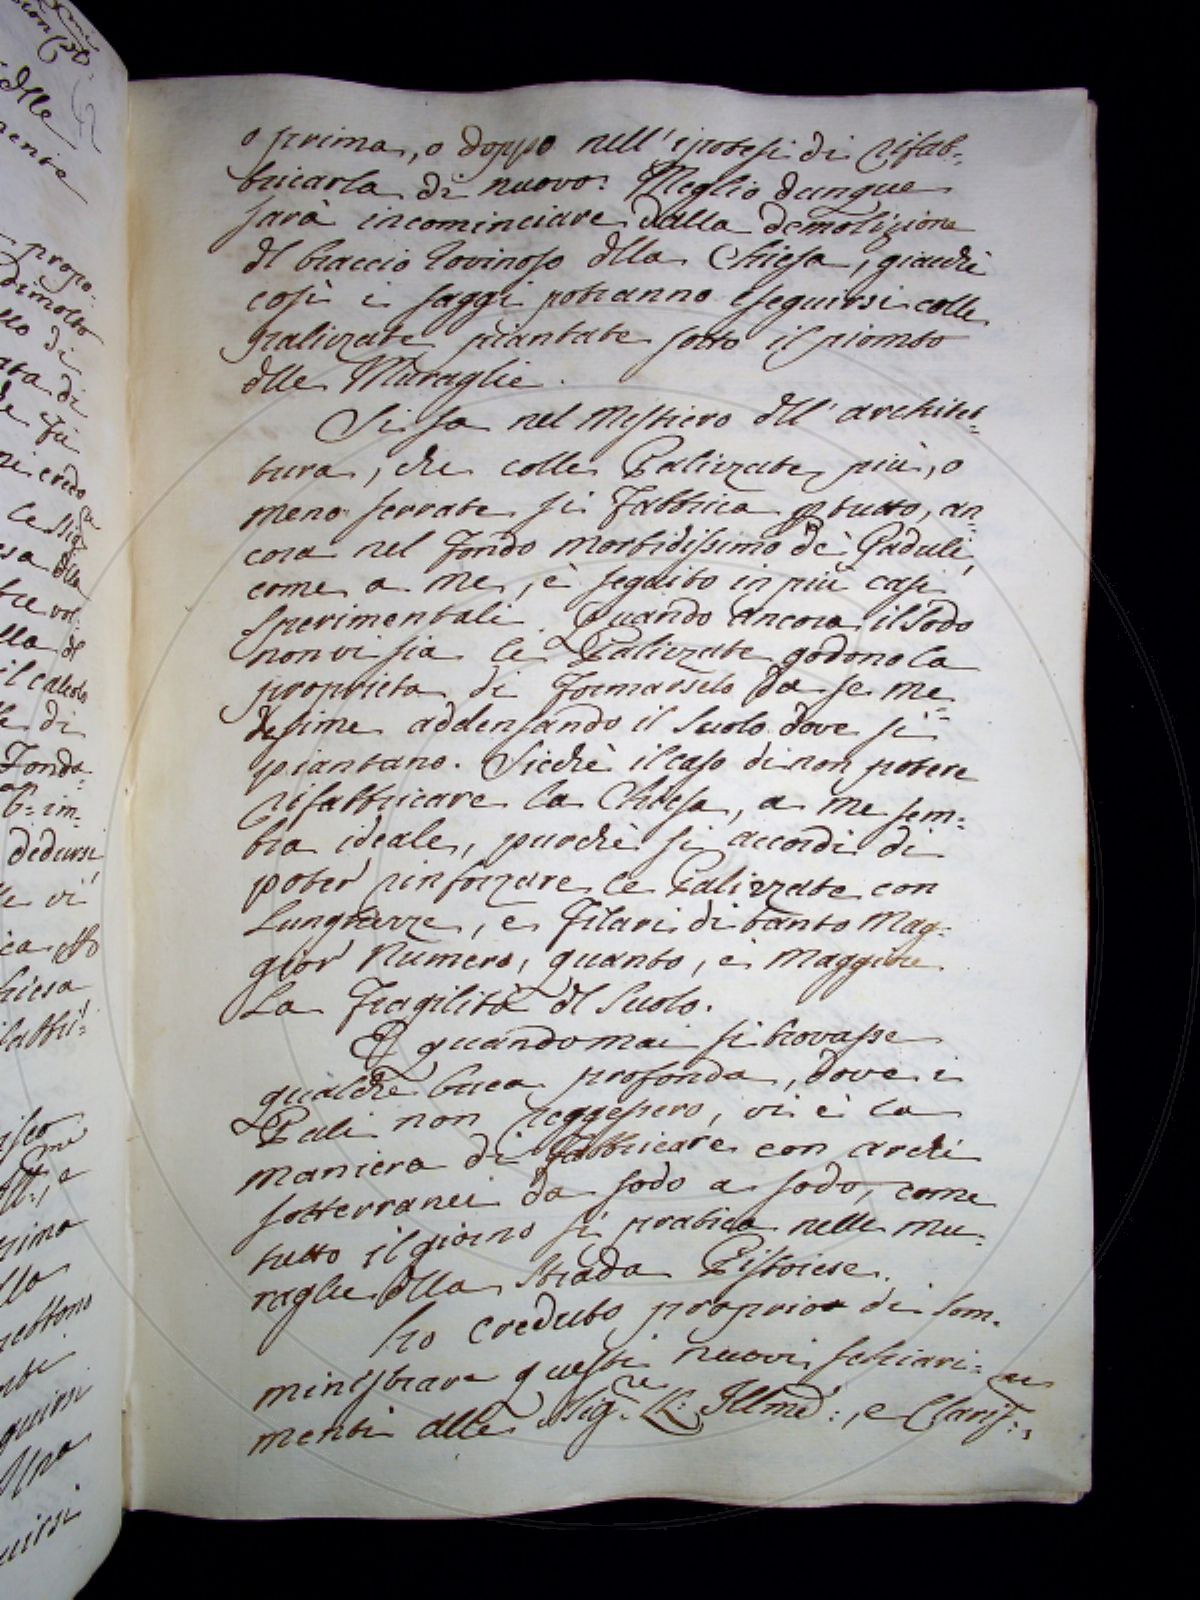 o prima, o doppo nell'ipotesi di rifab-
bricarla di nuovo. Meglio dunque
sarà incominciare dalla demolizione
dl braccio rovinoso dlla Chiesa, giacchè
così i saggi potranno eseguirsi colle
palizzate piantate sotto il piombo
dlle Muraglie.
Si sa nel Mestiero dll'architet-
tura, che colle Palizzate più, o
meno serrate si Fabbrica p tutto, an-
cora nel Fondo morbidissimo dè Paduli,
come a me, è seguito in più casi
sperimentali. Quando ancora il sodo
non vi sia le Palizzate godono la
proprietà di Formarselo da se me-
desime addensando il suolo dove si
piantano. Sicchè il caso di non potere
rifabbricare la Chiesa, a me sem-
bra ideale, purchè si accordi di
poter rinforzare le Palizzate con
Lunghezze, e Filari di tanto Mag-
gior Numero, quanto, è maggiore
La Fragilità dl Suolo.
E quando mai si trovasse
qualche buca profonda, dove i
Pali non reggessero, vi è la
maniera di Fabbricare con archi
sotterranei da sodo a sodo, come
tutto il giorno si pratica nelle mu-
raglie dlla Strada Pistoiese.
ho creduto proprio di som-
ministrare questi nuovi schiari-
menti alle Sig:re LL: Illme:, e Claris:me,
propo-
dimolto
di
di
Fù
credo
dlla
vol-
il calcolo
di
Fonda-
im-
dedursi
vi